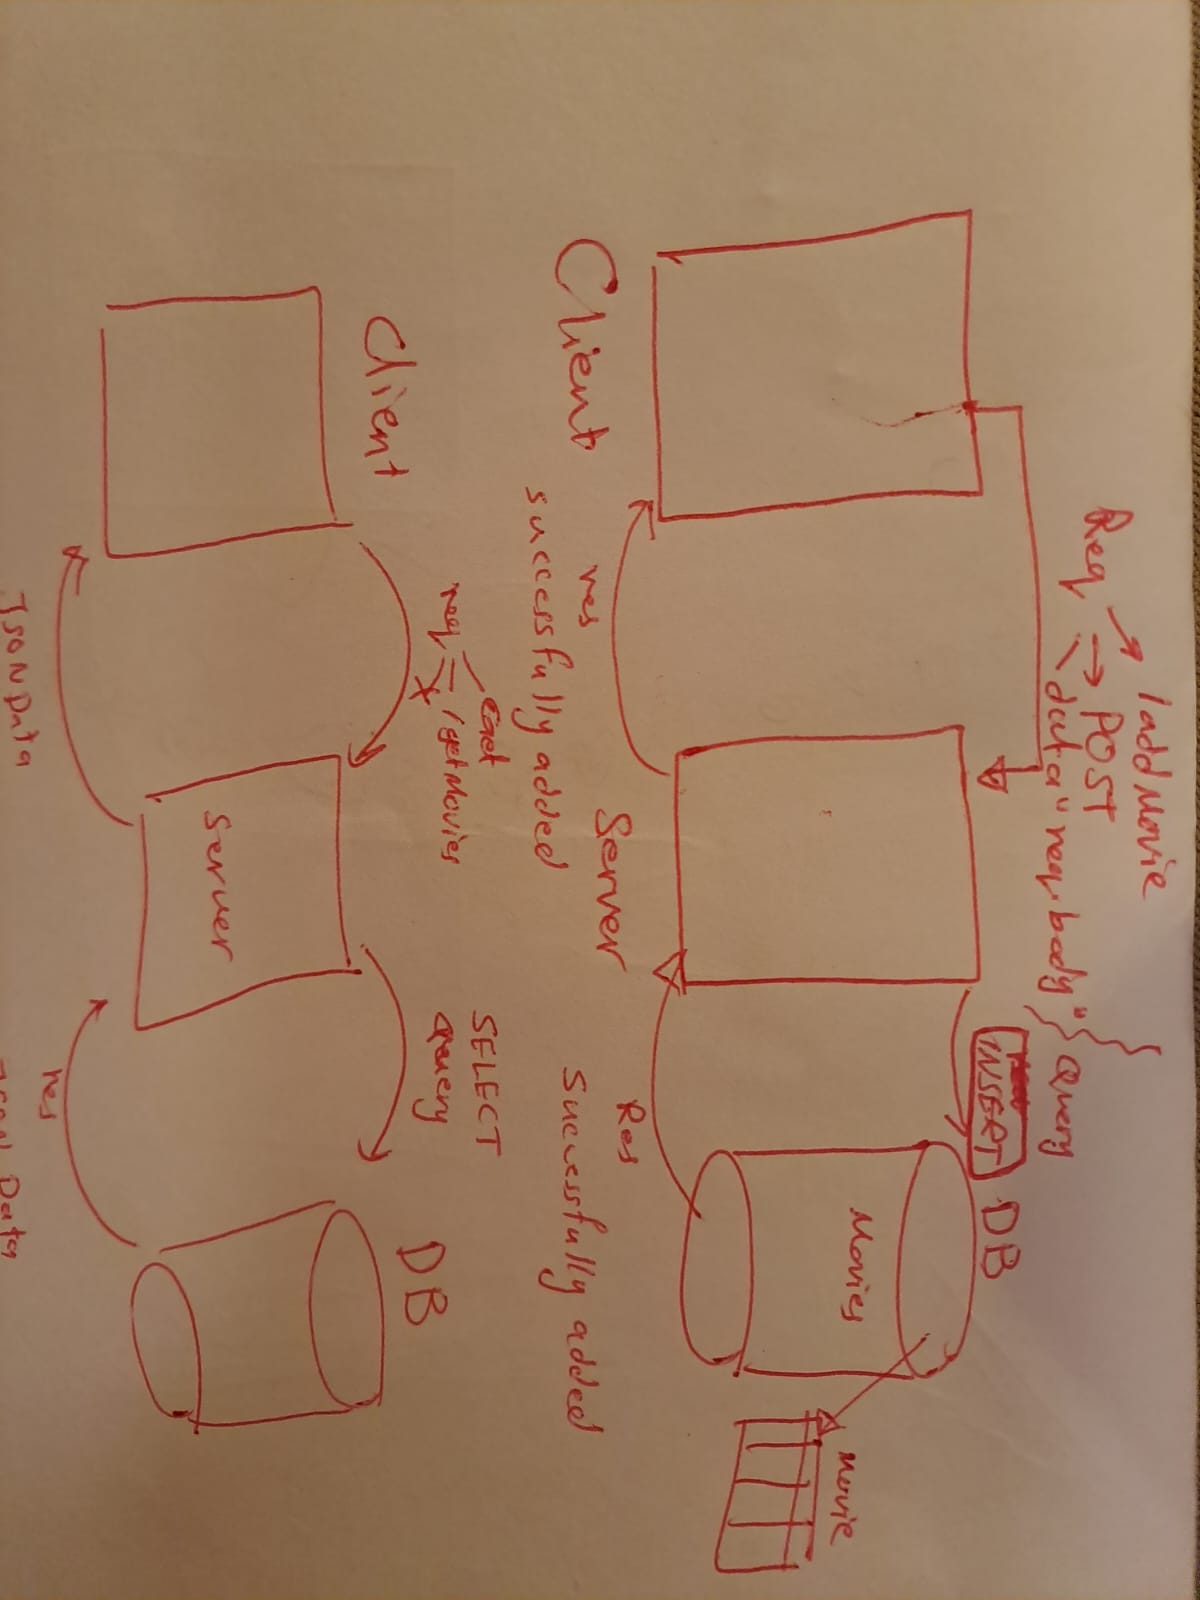 Req
/addMovie
POST
data "req.body"
query
INSERT
DB
Movies
movie
Client
res
successfully added
Server
Res
Successfully added
Client
req
Get
/getMovies
SELECT
query
DB
Server
JSON Data
res
JSON Data